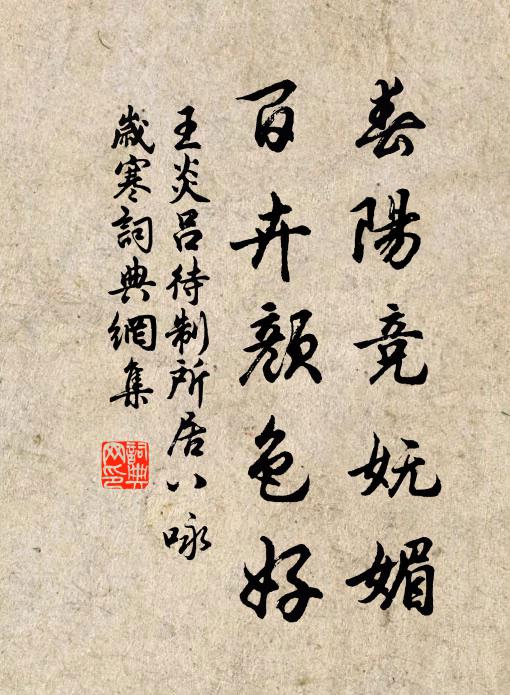 春陽竞妩媚
百卉顏色好
王炎吕待制所居八咏
歲寒詞典網集
詞典网印